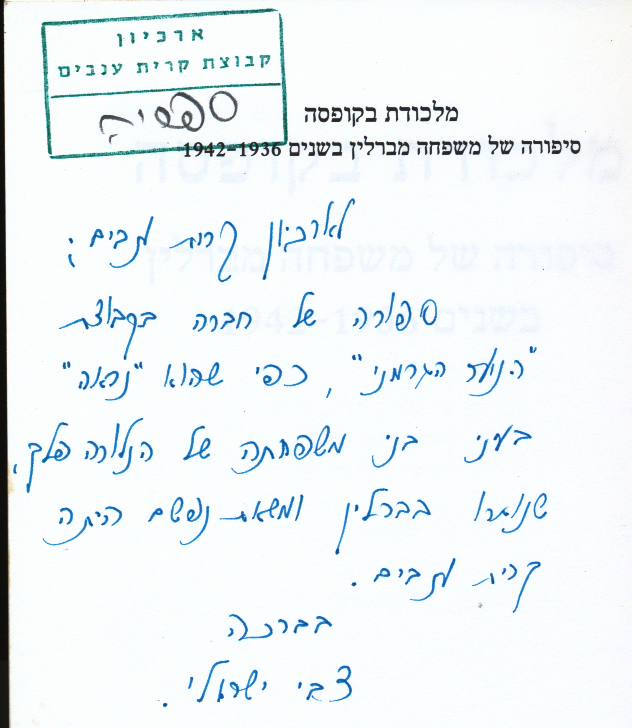 ארכיון
קבוצת קרית ענבים
ספריה
מלכודת בקופסה
סיפורה של משפחה מברלין בשנים 1942-1936
לארכיון קרית ענבים:
סיפורה של חברה בקבוצת
"הנוער הגרמני", כפי שהוא "נראה"
בעיני בני משפחתה של הנלורה פלק,
שנותרו בברלין ומשאת נפשם היתה
קרית ענבים.
בברכה
צבי ישראלי.